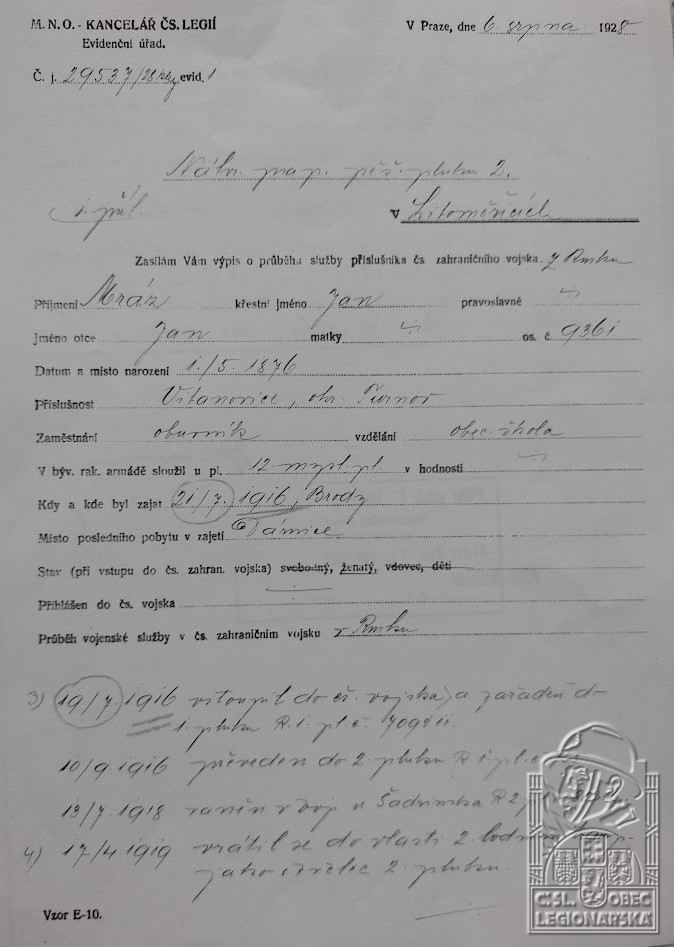 M. N. O. - KANCELÁŘ ČS. LEGIÍ
Evidenční úřad.
V Praze, dne 6. srpna 1928
Č. j. 29537/28 evid.
Náhr. prap. pěš. pluku 2.
V Litoměřicích
Zasílám Vám výpis o průběhu služby příslušníka čs. zahraničního vojska z Ruska
Příjmení Mráz křestní jméno Jan pravoslavné
Jméno otce Jan matky os. č. 9361
Datum a místo narození 1./5. 1876
Příslušnost Vstanovice, okr. Turnov
Zaměstnání obuvník vzdělání obec. škola
V býv. rak. armádě sloužil u pl. 12 mysl. pl. v hodnosti
Kdy a kde byl zajat 21/7. 1916, Brody
Místo posledního pobytu v zajetí Dárnice
Stav (při vstupu do čs. zahran. vojska) svobodný, ženatý, vdovec, děti
Přihlášen do čs. vojska
Průběh vojenské služby v čs. zahraničním vojsku v Rusku
3) 19/7. 1916 vstoupil do čs. vojska a zařaděn do
1. pluku R. 1. pl. č.
10/9 1916 převeden do 2. pluku R. 1. pl. č.
13/7 1918 raněn v boji u Šadrinska R 2 pl.
4) 17/4 1919 vrátil se do vlasti 2. lodním
jako střelec 2. pluku.
Vzor E-10.
ČSL. OBEC
LEGIONÁŘSKÁ